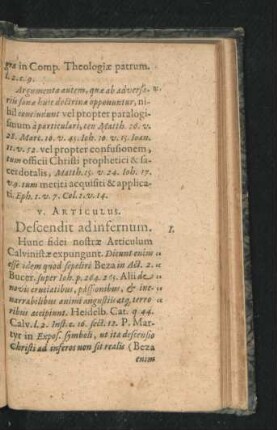 gra in Comp. Theologiæ patrum.
l. 2. c. 9.
Argumenta autem, quæ ab adversa-
riis sanæ huic doctrinæ opponuntur, ni-
hil concludunt vel propter paralogi-
smum à particulari, ceu Matth. 26. v.
28. Marc. 10. v. 45. Joh. 10. v. 15. Joan.
11. v. 52. vel propter confusionem,
tum officii Christi prophetici & sa-
cerdotalis, Matth. 15. v. 24. Joh. 17.
v. 9. tum meriti acquisiti & applica-
ti. Eph. 1. v. 7. Col. 1. v. 14.
V. ARTICULUS.
Descendit ad infernum. I.
Hunc fidei nostræ Articulum
Calvinistæ expungunt. Dicunt enim
esse idem quod sepeliri Beza in Act. 2.
Bucer. super Joh. p. Alii de
novis cruciatibus, passionibus, & iner-
narrabilibus animi angustiis atq; terro
ribus accipiunt. Heidelb. Cat. q 44.
Calv. l. 2. Inst. c. 16. sect. 12. P. Mar-
tyr in Expos. symboli, ut ita descensio
Christi ad inferos non sit realis (Beza
enim